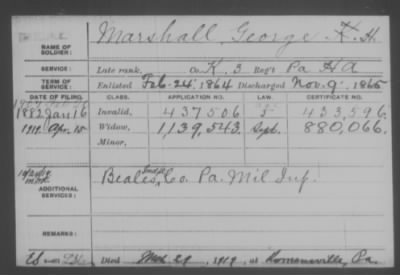 NAME OF SOLDIER: Marshall, George H.
SERVICE: Late rank, Co. K, 3 Reg't Pa H A
TERM OF SERVICE: Enlisted Feb. 24, 1864 Discharged Nov. 9, 1865
DATE OF FILING. CLASS. APPLICATION NO. LAW. CERTIFICATE NO.
1882 Jan 16 Invalid, 437506 433,596
1919 Apr. 15 Widow, 1,139,543 Sept. 880,066.
Minor,
ADDITIONAL SERVICES: Beales Indpt Co. Pa. Mil Inf.
REMARKS:
Died Mch 29, 1919, at Romansville, Pa.